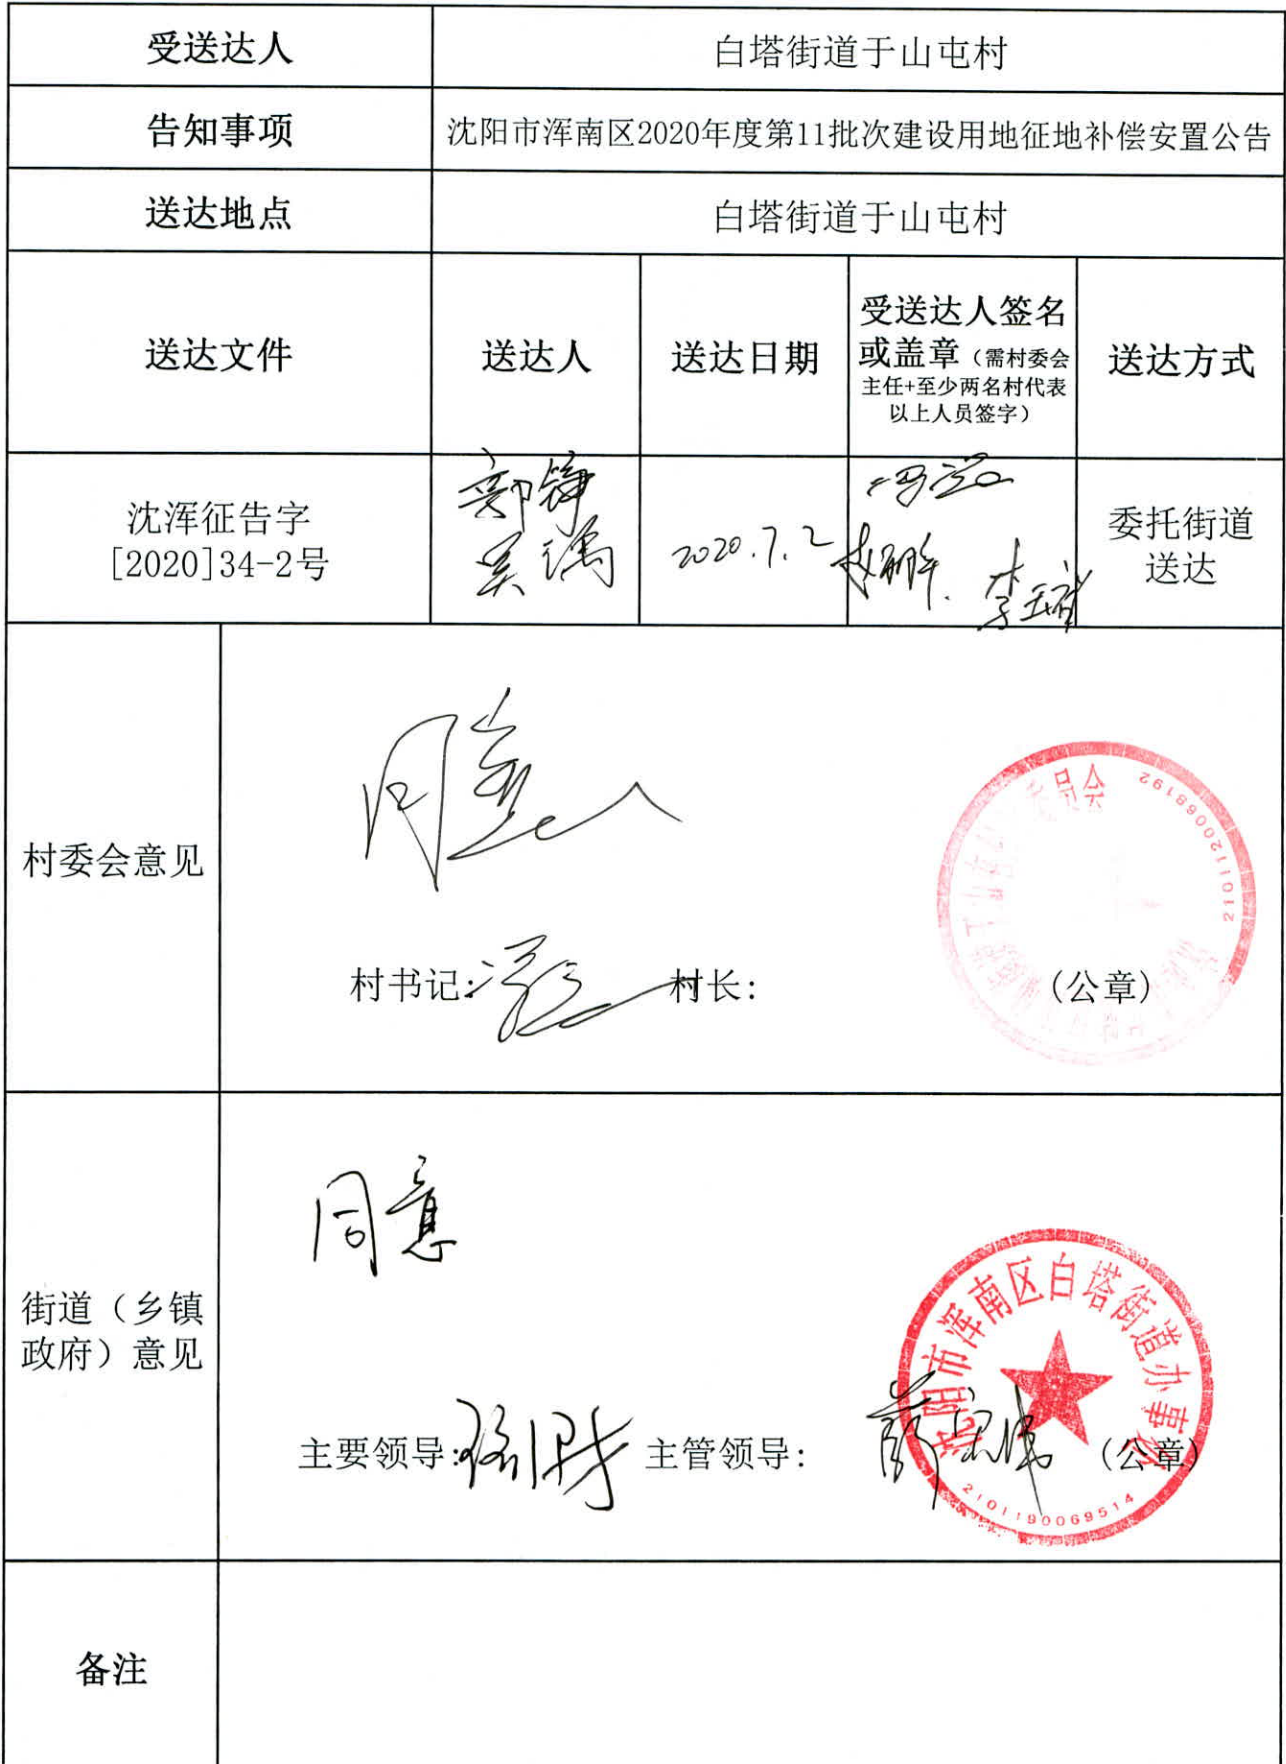 受送达人
白塔街道于山屯村
告知事项
沈阳市浑南区2020年度第11批次建设用地征地补偿安置公告
送达地点
白塔街道于山屯村
送达文件
送达人
送达日期
受送达人签名
或盖章（需村委会
主任+至少两名村代表
以上人员签字）
送达方式
沈浑征告字
[2020]34-2号
2020.7.2
委托街道
送达
村委会意见
同意
村书记:
村长:
（公章）
员会
2101120068192
街道（乡镇
政府）意见
同意
主要领导:
主管领导:
（公章）
沈阳市浑南区白塔街道办事处
2101190069514
备注